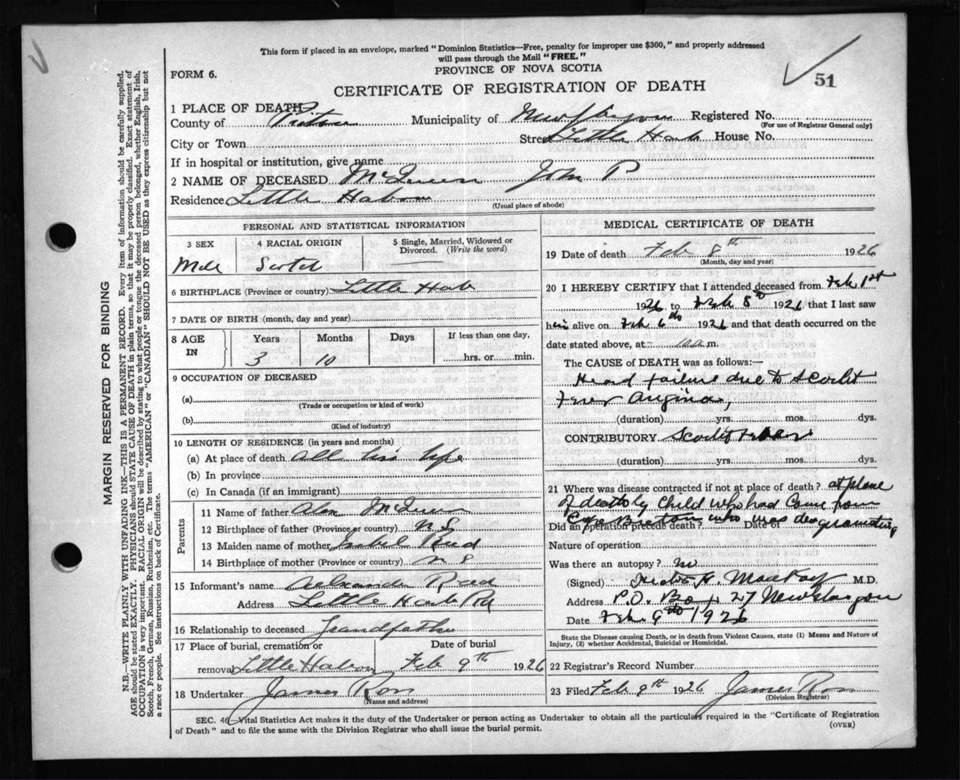 This form if placed in an envelope, marked "Dominion Statistics—Free, penalty for improper use $300," and properly addressed
will pass through the Mail "FREE."
PROVINCE OF NOVA SCOTIA
FORM 6.
51
CERTIFICATE OF REGISTRATION OF DEATH
MARGIN RESERVED FOR BINDING
N.B.—WRITE PLAINLY WITH UNFADING INK—THIS IS A PERMANENT RECORD. Every item of information should be carefully supplied.
AGE should be stated EXACTLY. PHYSICIANS should STATE CAUSE OF DEATH in plain terms, so that it may be properly classified. Exact statement of
OCCUPATION is very important. RACIAL ORIGIN will be described by stating to what people or tongue the deceased person belonged, whether English, Irish,
Scotch, French, German, Russian, Ruthenian, etc. The terms "AMERICAN" or "CANADIAN" SHOULD NOT BE USED as they express citizenship but not
a race or people. See instructions on back of Certificate.
1 PLACE OF DEATH
County of Pictou Municipality of Registered No.
(For use of Registrar General only)
City or Town Street Little Harb House No.
If in hospital or institution, give name
2 NAME OF DECEASED McQueen John P
Residence Little Harbour
(Usual place of abode)
PERSONAL AND STATISTICAL INFORMATION
3 SEX 4 RACIAL ORIGIN 5 Single, Married, Widowed or Divorced. (Write the word)
Male Scotch
6 BIRTHPLACE (Province or country) Little Harb
7 DATE OF BIRTH (month, day and year)
8 AGE IN Years Months Days If less than one day,
3 10 hrs. or min.
9 OCCUPATION OF DECEASED
(a)
(Trade or occupation or kind of work)
(b)
(Kind of industry)
10 LENGTH OF RESIDENCE (in years and months)
(a) At place of death all his life
(b) In province
(c) In Canada (if an immigrant)
Parents
11 Name of father Alex McQueen
12 Birthplace of father (Province or country) N S
13 Maiden name of mother Isabel Reid
14 Birthplace of mother (Province or country) N S
15 Informant's name Alexander Reid
Address Little Harb
16 Relationship to deceased Grandfather
17 Place of burial, cremation or removal Date of burial
Little Harbour Feb 9th 1926
18 Undertaker James Ross
(Name and address)
MEDICAL CERTIFICATE OF DEATH
19 Date of death Feb 8th 1926
(Month, day and year)
20 I HEREBY CERTIFY that I attended deceased from Feb 1st
1926 to Feb 8th 1926 that I last saw
him alive on Feb 6th 1926 and that death occurred on
date stated above, at m.
The CAUSE of DEATH was as follows:—
failure due to Scarlet
Fever Angina,
(duration) yrs. mos. dys.
CONTRIBUTORY Scarlet Fever
(duration) yrs. mos. dys.
21 Where was disease contracted if not at place of death? at place
of death by child who had come from
Cape Breton who was desquamating
Did an operation precede death? Date
Nature of operation
Was there an autopsy? no
(Signed) H. MacKay M.D.
Address P.O. Box 27 New Glasgow
Date Feb 9th 1926
State the Disease causing Death, or in death from Violent Causes, state (1) Means and Nature of
Injury, (2) whether Accidental, Suicidal or Homicidal.
22 Registrar's Record Number
23 Filed Feb 9th 1926 James Ross
(Division Registrar)
SEC. 40 Vital Statistics Act makes it the duty of the Undertaker or person acting as Undertaker to obtain all the particulars required in the "Certificate of Registration
of Death" and to file the same with the Division Registrar who shall issue the burial permit. (OVER)